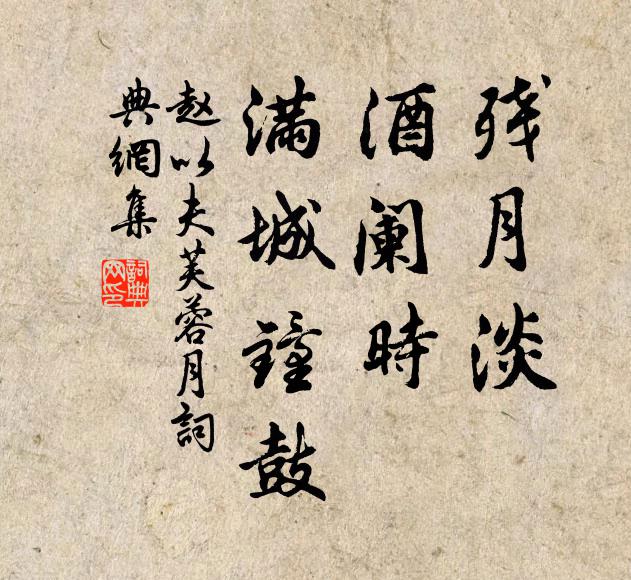 残月淡
酒阑時
满城鐘鼓
赵以夫芙蓉月詞
典網集
詞典
网印